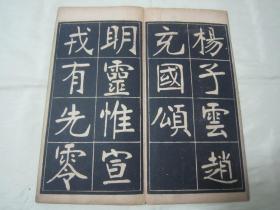 楊子雲趙
充國頌
明靈惟宣
戎有先零